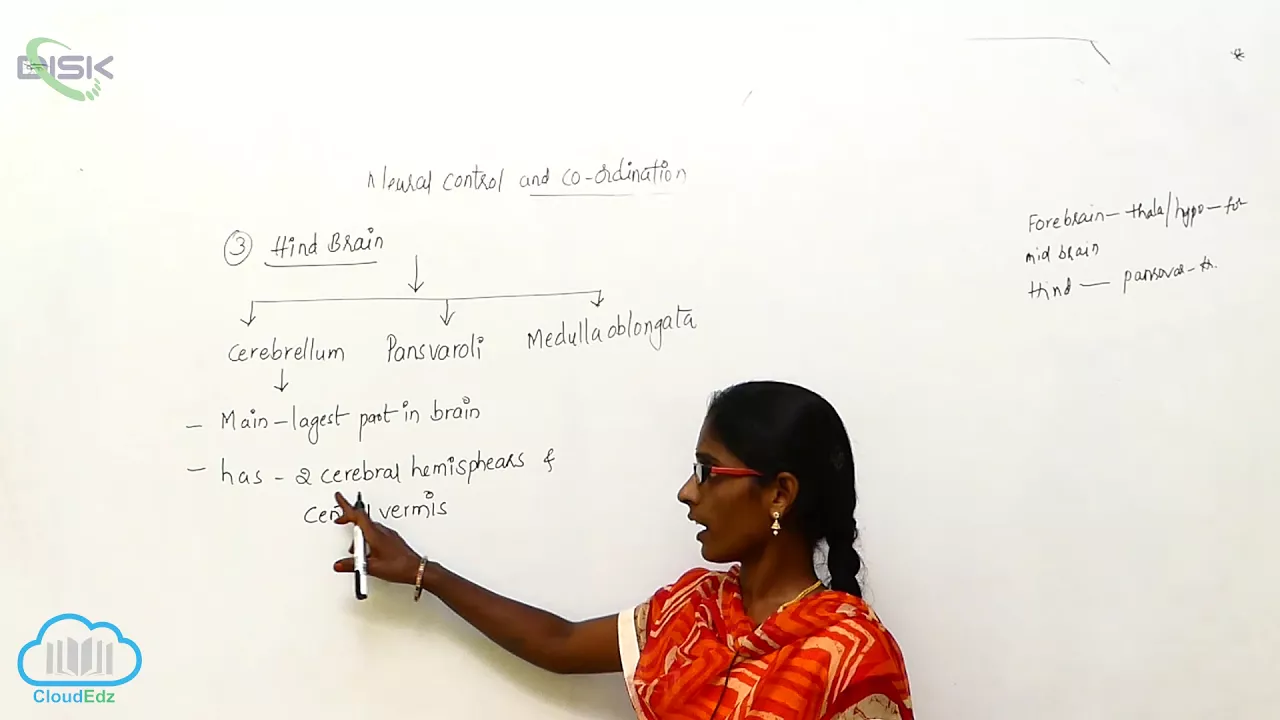 DISK
Neural control and co-ordination
③ Hind Brain
Cerebrellum Pansvaroli Medulla oblongata
- Main - lagest part in brain
- has - 2 cerebral hemisphears &
vermis
Forebrain - thala/hypo - for
mid brain
Hind -
CloudEdz